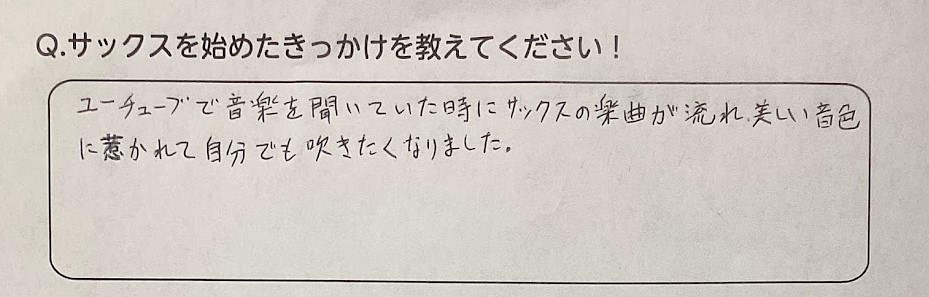 Q.サックスを始めたきっかけを教えてください!
ユーチューブで音楽を聞いていた時にサックスの楽曲が流れ、美しい音色
に惹かれて自分でも吹きたくなりました。